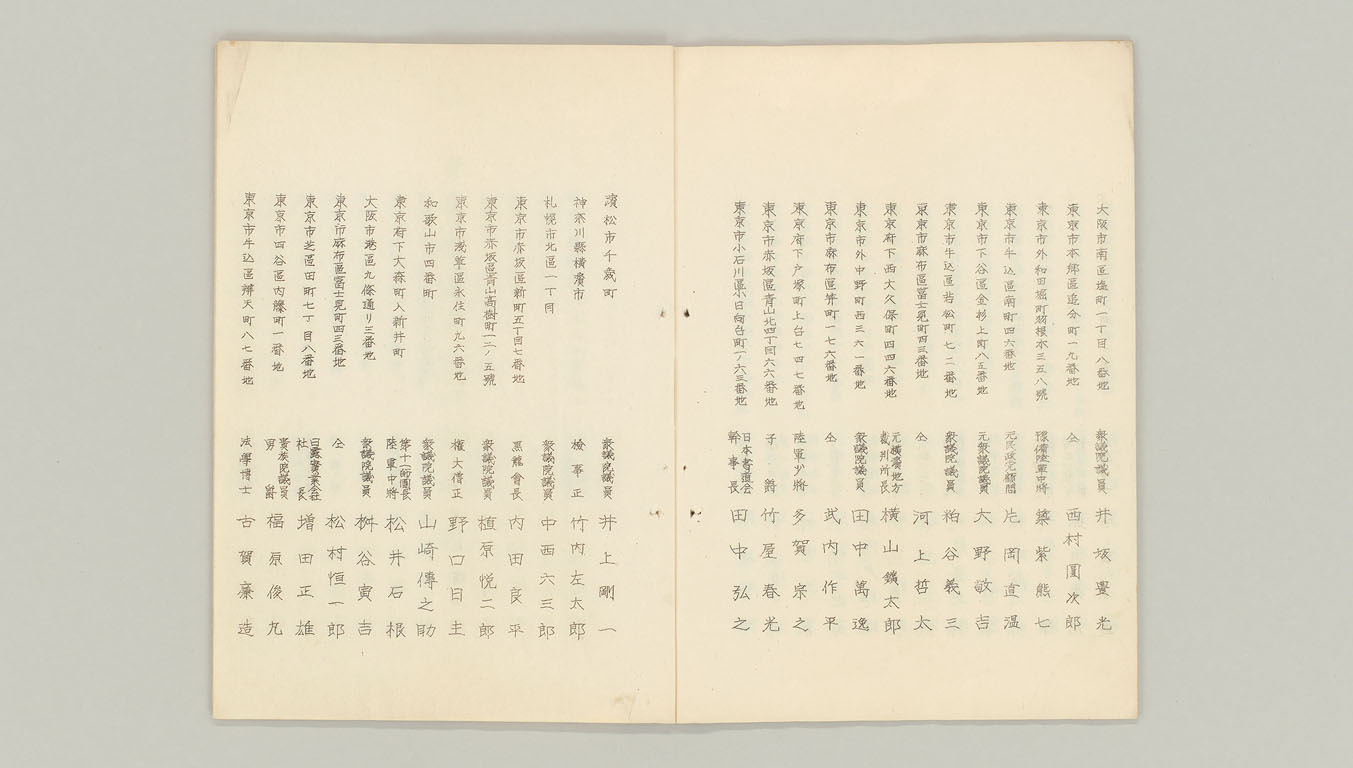 大阪市南區塩町一丁目八番地 衆議院議員 井坂豊光
東京市本郷區追分町一九番地 仝 西村圓次郎
東京市外和田堀町羽根木三五八號 豫備陸軍中將 築紫熊七
東京市牛込區南町四六番地 元民政党顧問 片岡直温
東京市下谷區金杉上町八五番地 元衆議院議員 大野敬吉
東京市牛込區若松町七二番地 衆議院議員 粕谷義三
東京市麻布區冨士見町四三番地 仝 河上哲太
東京府下西大久保町四四六番地 元横濱地方裁判所長 横山鑛太郎
東京市外中野町西三六一番地 衆議院議員 田中萬逸
東京市麻布區笄町一七六番地 仝 武内作平
東京府下戸塚町上台七四七番地 陸軍少將 多賀宗之
東京市赤坂區青山北四丁目六六番地 子爵 竹屋春光
東京市小石川區小日向台町一ノ六三番地 日本書道会幹事長 田中弘之
濱松市千歳町 衆議院議員 井上剛一
神奈川縣横濱市 檢事正 竹内左太郎
札幌市北區一丁目 衆議院議員 中西六三郎
東京市赤坂區新町五丁目七番地 黒龍會長 内田良平
東京市赤坂區青山高樹町一二ノ五號 衆議院議員 植原悦二郎
東京市浅草區永住町九六番地 権大僧正 野口日主
和歌山市四番町 衆議院議員 山崎傳之助
東京府下大森町入新井町 第十一師團長陸軍中將 松井石根
大阪市港區九條通リ三番地 衆議院議員 桝谷寅吉
東京市麻布區冨士見町四三番地 仝 松村恒一郎
東京市芝區田町七丁目八番地 日露實業会社社長 増田正雄
東京市四谷區内藤町一番地 貴族院議員男爵 福原俊丸
東京市牛込區辨天町八七番地 法學博士 古賀廉造